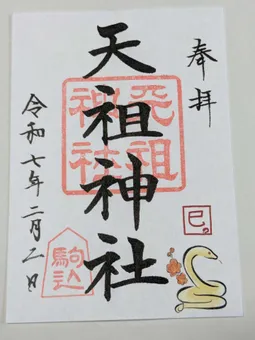 奉拝
天祖神社
天祖神社
巳
駒込
令和七年二月二日